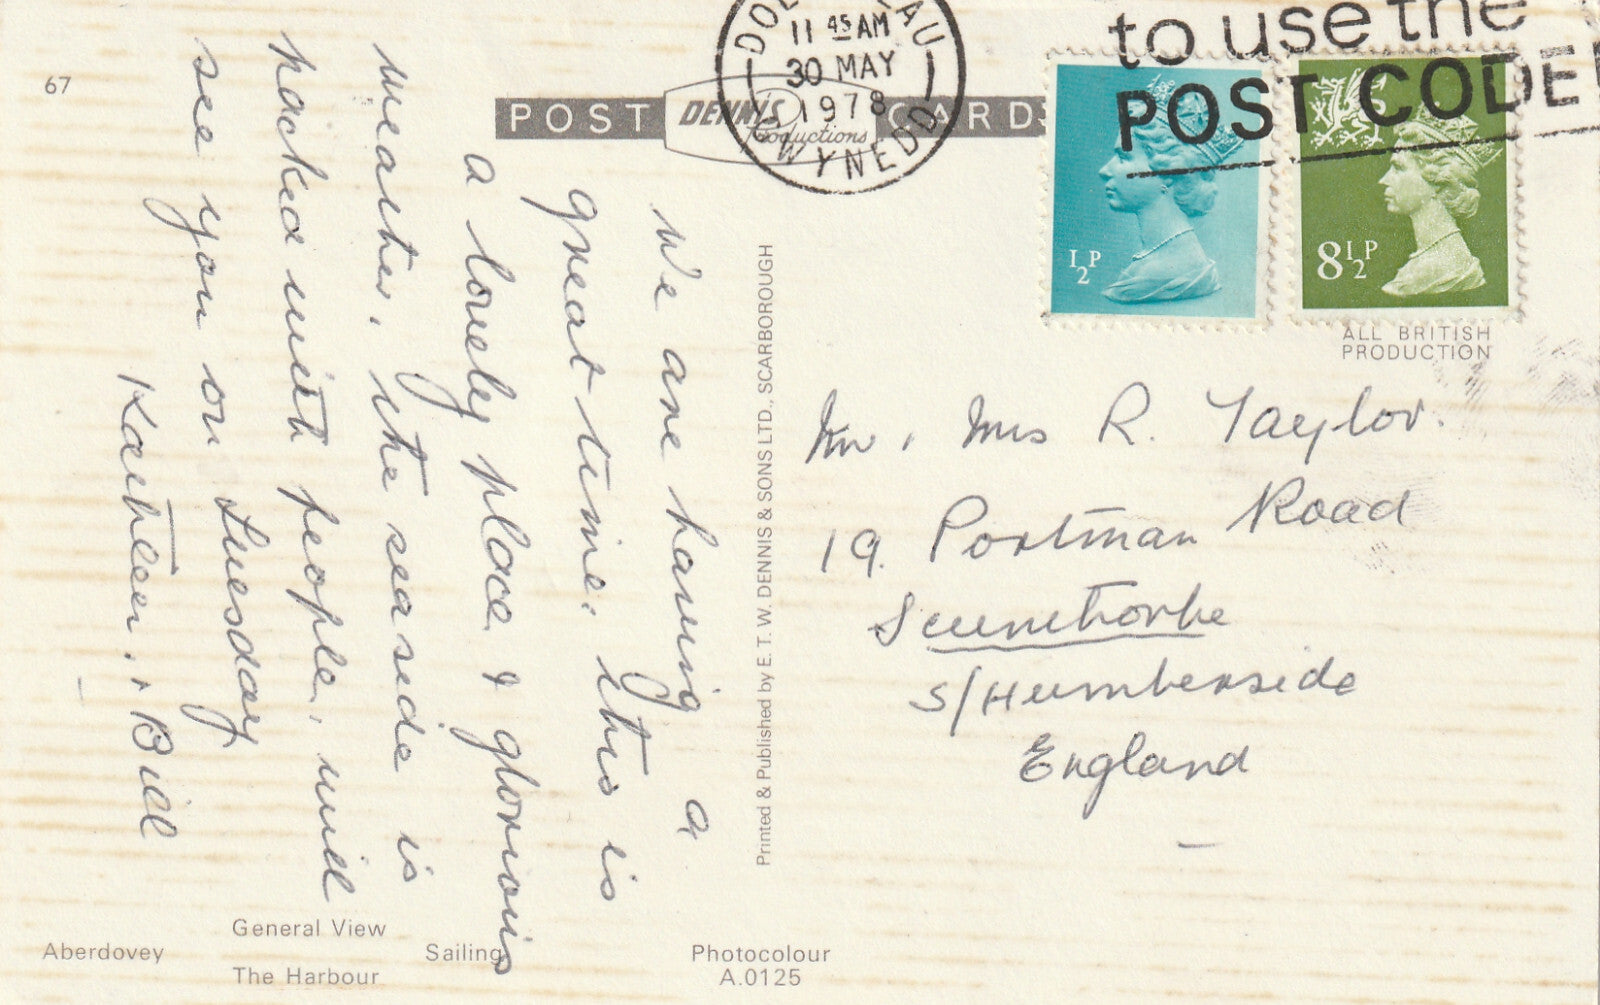 67
POST DENNIS Productions CARDS
11 45 AM
30 MAY
1978
GWYNEDD
to use the
POST CODE
½P
8½P
ALL BRITISH
PRODUCTION
We are having a
great time. this is
a lovely place & glorious
weather, the seaside is
packed with people, will
see you on Tuesday
Kathleen, + Bill
Printed & Published by E. T. W. DENNIS & SONS LTD., SCARBOROUGH
Mr, Mrs R. Taylor.
19. Portman Road
Scunthorpe
S/Humberside
England
General View
Aberdovey
Sailing
The Harbour
Photocolour
A.0125